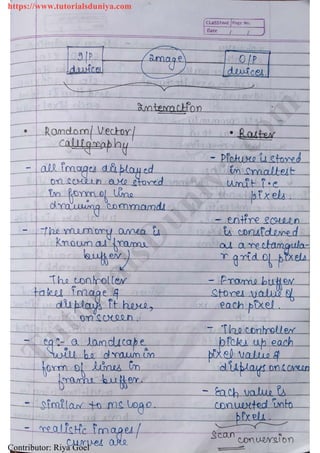 https://www.tutorialsduniya.com
Classmate Page No.
Date / /
I/P devices
Image
O/P devices
Interaction
• Random/Vector/
calligraphy
- all images displayed
on screen are stored
in form of line
drawing commands
- The memory area is
known as frame
buffer
The controller
takes image &
displays it here,
on screen.
- eg:- a landscape
will be drawn in
form of lines in
frame buffer.
- Similar to MS Logo.
- realistic images/
curves are
• Raster
- Picture is stored
in smallest
unit i.e
pixels.
- entire screen
is considered
as a rectangula-
r grid of pixels
- Frame buffer
stores value of
each pixel.
- The controller
picks up each
pixel value &
displays on screen
- Each value is
converted into
pixels.
Scan conversion
TutorialsDuniya.com
Contributor: Riya Goel